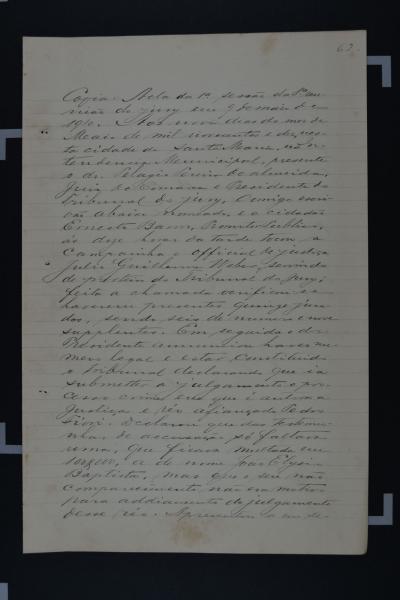 62
Copia. Acta da 1ª sessão da 1ª reu-
nião do jury em 9 de maio de
1910. Aos nove dias do mez de
Maio de mil novecentos e dez, nes-
ta cidade de Santa Maria, na In-
tendencia Municipal, presente
o dr. Pelagio Pereira de Almeida,
Juiz de Comarca e Presidente do
Tribunal do Jury, comigo escri-
vão abaixo nomeado, e o cidadão
Ernesto Barros, Promotor Publico,
ás dez horas da tarde tocou a
Campainha o official de justiça
Julio Guilherme Weber, servindo
de porteiro do Tribunal do Jury,
feita a chamada verificou-se
haverem presentes quinze jura-
dos, sendo seis de numero e nove
supplentes. Em seguida o dr.
Presidente annunciou haver nu-
mero legal e estar constituido
o Tribunal declarando que ia
submetter a julgamento o pro-
cesso crime em que é autora a
Justiça e réo afiançado Pedro
Fiori. Declarou que das testemu-
nhas de accusação só faltava
uma, que ficava multada em
100$000, a de nome Elysia
Baptista, mas que o seu não
comparecimento não era motivo
para addiamento do julgamento
desse réo. Apresentou a ur-